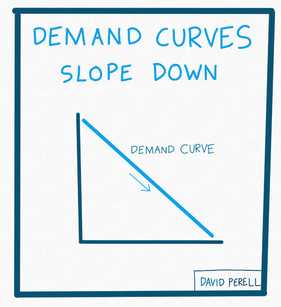 DEMAND CURVES
SLOPE DOWN
DEMAND CURVE
DAVID PERELL